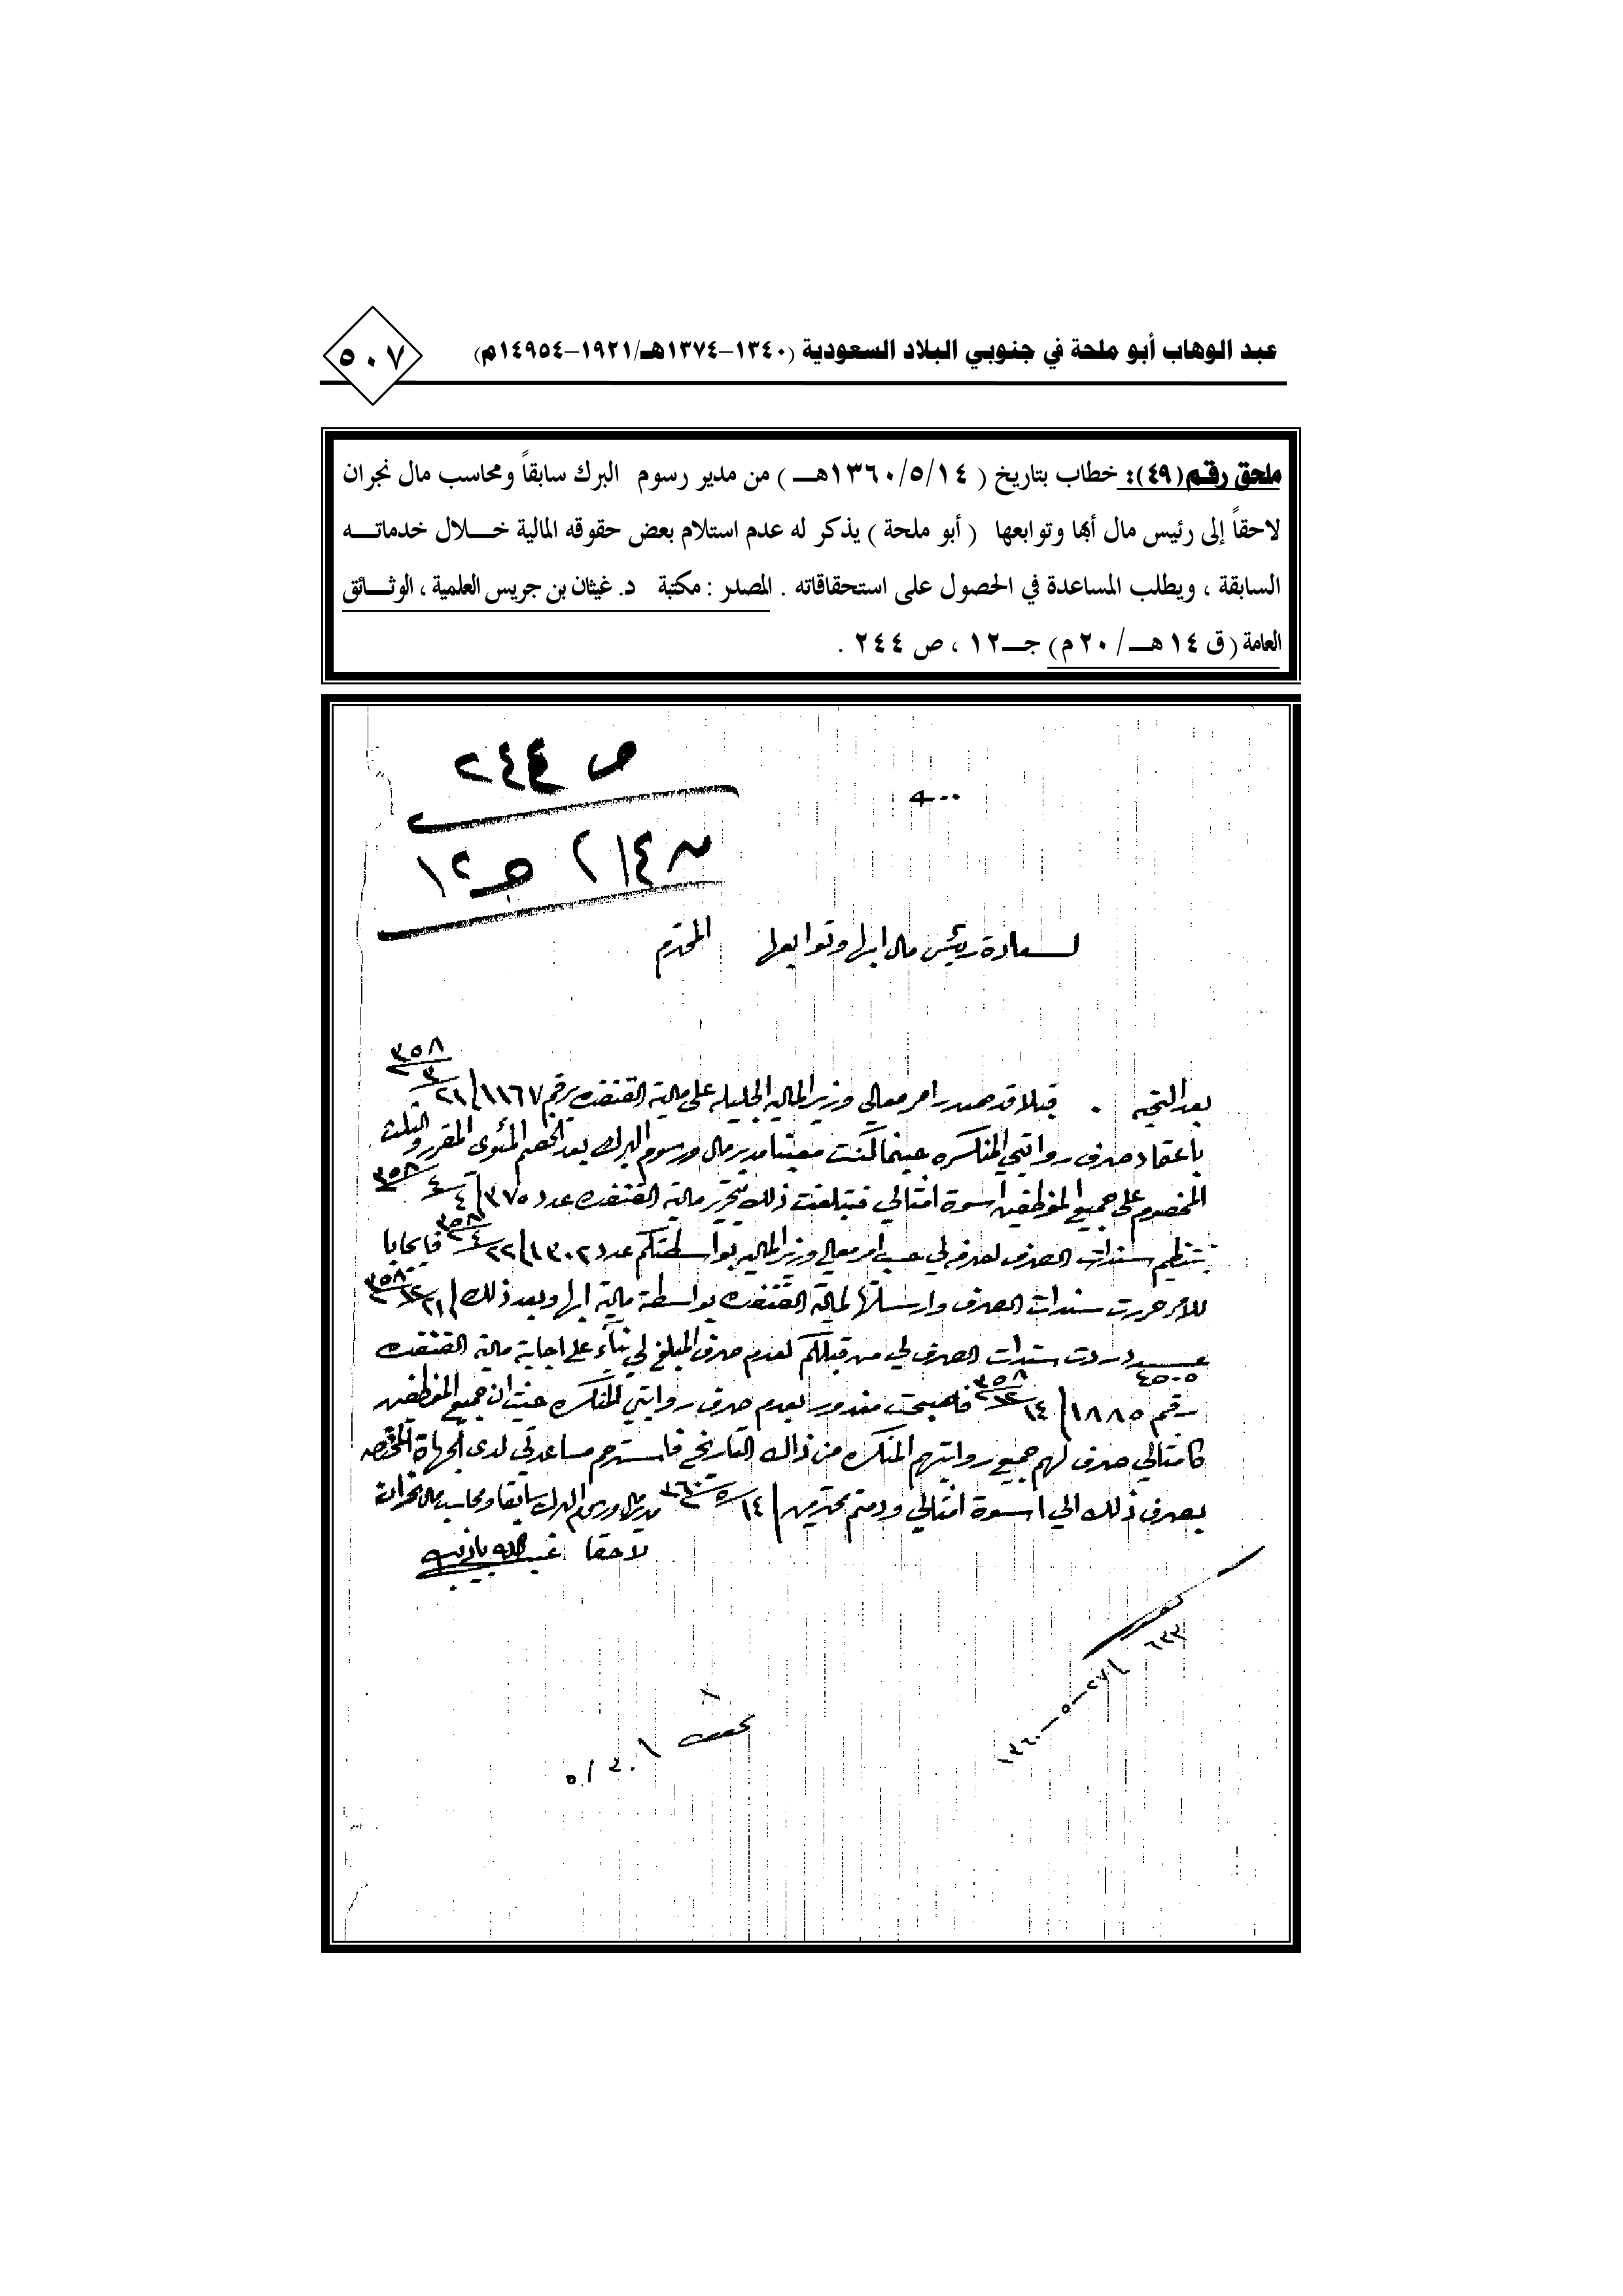 عبد الوهاب أبو ملحة في جنوبي البلاد السعودية (١٣٤٠-١٣٧٤هـ/١٩٢١-١٤٩٥٤م)
٥٠٧
ملحق رقـم(٤٩): خطاب بتاريخ ( ١٣٦٠/٥/١٤هـــ ) من مدير رسوم البرك سابقاً ومحاسب مال نجران
لاحقاً إلى رئيس مال أبها وتوابعها ( أبو ملحة ) يذكر له عدم استلام بعض حقوقه المالية خـــلال خدماتـــه
السابقة ، ويطلب المساعدة في الحصول على استحقاقاته . المصدر : مكتبة د. غيثان بن جريس العلمية ، الوثـــائق
العامة ( ق ١٤ هـــ / ٢٠ م ) جـــ١٢ ، ص ٢٤٤ .
ص ٢٤٤
٢١٤
جـ ١٢
لسعادة رئيس مال ابها وتوابعها المحترم
بعد التحيه . قبلا قد صدر امر معالي وزير المالية الجليله على مالية القنفذه رقم ١١٦٧ / ٢١ / ٣ / ٣٥٨
باعتماد صرف رواتبي المنكسره حينما كنت معينا مدير مال ورسوم البرك بعد الخصم المئوى المقرر والثلث
المخصوم على جميع الموظفين أسوة امثالي فتبلغت ذلك بتحرير مالية القنفذه عدد ٣٧٥ / ٤ / ٤ / ٣٥٨
بتنظيم سندات الصرف لصرفه لي حسب امر معالي وزير المالية بواسطتكم عدد ١٣٠٢ / ٢٢ / ٤ / ٣٥٨ فايجابا
للامر حررت سندات الصرف وارسلتها لمالية القنفذه بواسطة مالية ابها وبعد ذلك ٢١ / ١٢ / ٣٥٨
عدد ٤٥٠٥ ردت سندات الصرف لي من قبلكم لعدم صرف المبلغ لي بناءً على اجابة مالية القنفذه
رقم ١٨٨٥ / ١٤ / ١٢ / ٣٥٨ فاصبحت مغدور بعدم صرف رواتبي المنكسره حيث ان جميع الموظفين
كامثالي صرف لهم جميع رواتبهم المنكسره من ذاك التاريخ فاسترحم مساعدتي لدى الجهاة المختصه
بصرف ذلك الي اسوة امثالي ودمتم محترمين ١٤ / ٥ / ٣٦٠ مدير مال ورسوم البرك سابقا ومحاسب مال نجران
لاحقا
٦٣٣
٢٧ - ٥ - ١٣٦٠
٢٠ / ٥